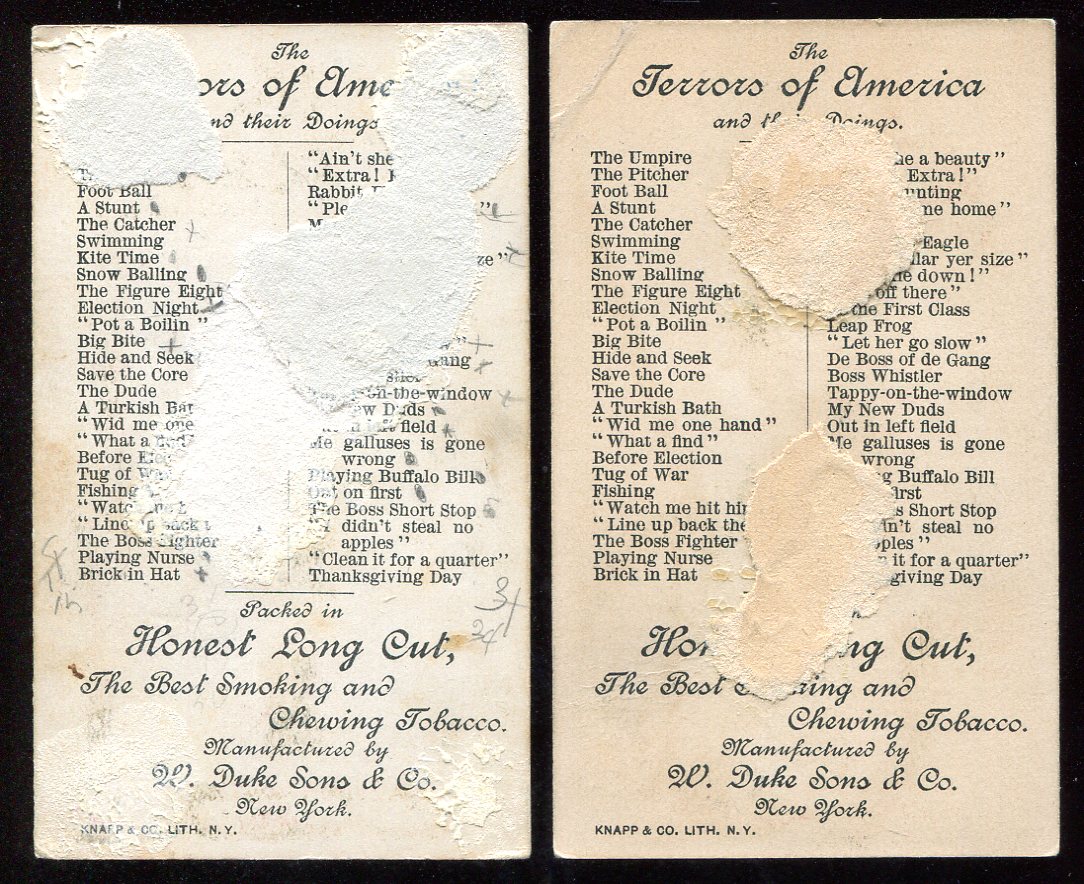 The
ors of Ame
nd their Doings
Foot Ball
A Stunt
The Catcher
Swimming
Kite Time
Snow Balling
The Figure Eight
Election Night
"Pot a Boilin"
Big Bite
Hide and Seek
Save the Core
The Dude
A Turkish Bat
"Wid me one
"What a
Before Elec
Tug of Wa
Fishing
"Watc
"Line up back t
The Boss Fighter
Playing Nurse
Brick in Hat
"Ain't she
"Extra!
Rabbit
"Ple
ze"
ang
-on-the-window
ew Duds
left field
Me galluses is gone
wrong
Playing Buffalo Bill
Out on first
The Boss Short Stop
"I didn't steal no
apples"
"Clean it for a quarter"
Thanksgiving Day
31
34
Packed in
Honest Long Cut,
The Best Smoking and
Chewing Tobacco.
Manufactured by
W. Duke Sons & Co.
New York.
KNAPP & CO. LITH. N.Y.
The
Terrors of America
and their Doings.
The Umpire
The Pitcher
Foot Ball
A Stunt
The Catcher
Swimming
Kite Time
Snow Balling
The Figure Eight
Election Night
"Pot a Boilin"
Big Bite
Hide and Seek
Save the Core
The Dude
A Turkish Bath
"Wid me one hand"
"What a find"
Before Election
Tug of War
Fishing
"Watch me hit hi
"Line up back the
The Boss Fighter
Playing Nurse
Brick in Hat
he a beauty"
Extra!"
unting
me home"
Eagle
llar yer size"
e down!"
off there"
the First Class
Leap Frog
"Let her go slow"
De Boss of de Gang
Boss Whistler
Tappy-on-the-window
My New Duds
Out in left field
Me galluses is gone
wrong
g Buffalo Bill
first
s Short Stop
dn't steal no
pples"
it for a quarter"
giving Day
Hon ng Cut,
The Best king and
Chewing Tobacco.
Manufactured by
W. Duke Sons & Co.
New York.
KNAPP & CO. LITH. N.Y.